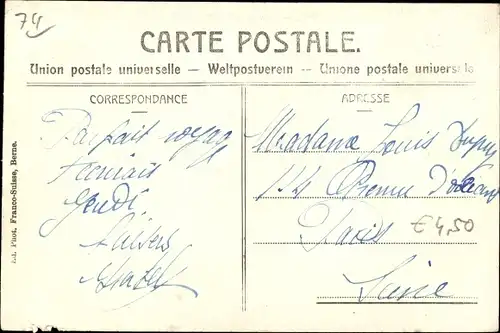 74
CARTE POSTALE.
Union postale universelle — Weltpostverein — Unione postale universale
CORRESPONDANCE
Parfait voyage
Jeudi.
Baisers
ADRESSE
Madame Louis Dupuy
114 Avenue d'Orléans
Paris
€4,50
Seine
Ed. Phot. Franco-Suisse, Berne.